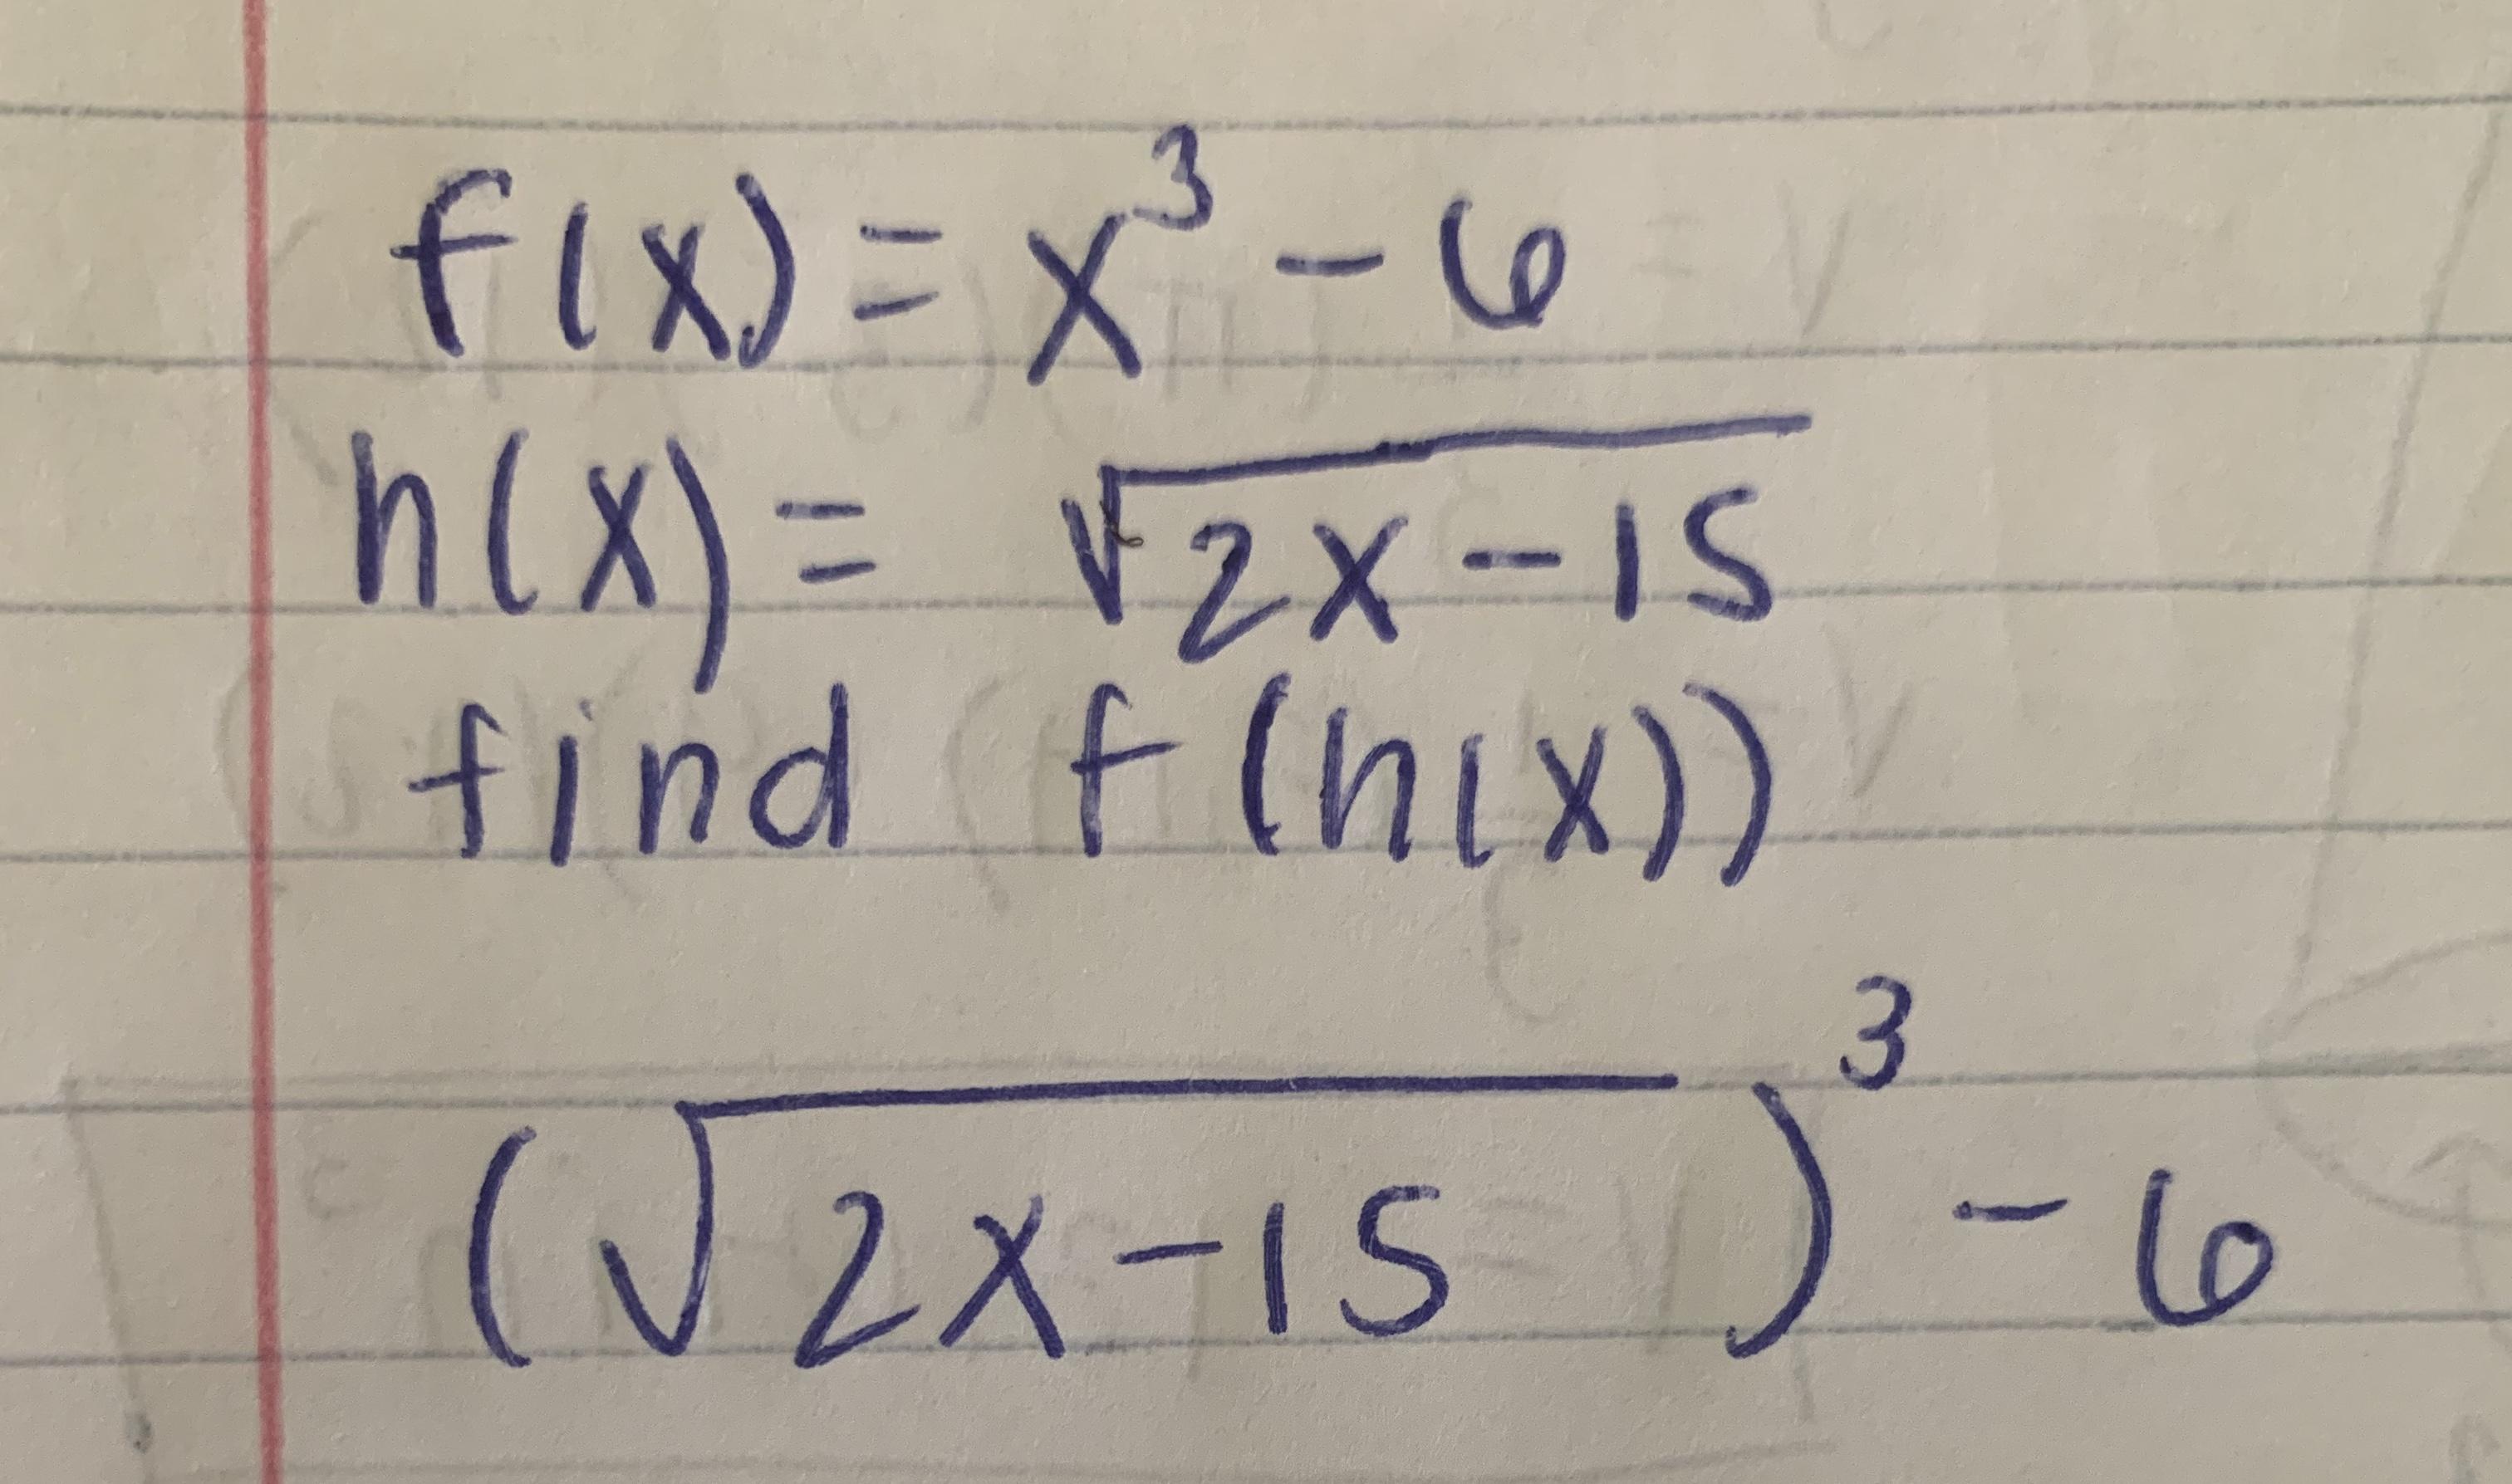 f(x) = x³ - 6
h(x) = √(2x - 15)
find f(h(x))
(√(2x - 15))³ - 6